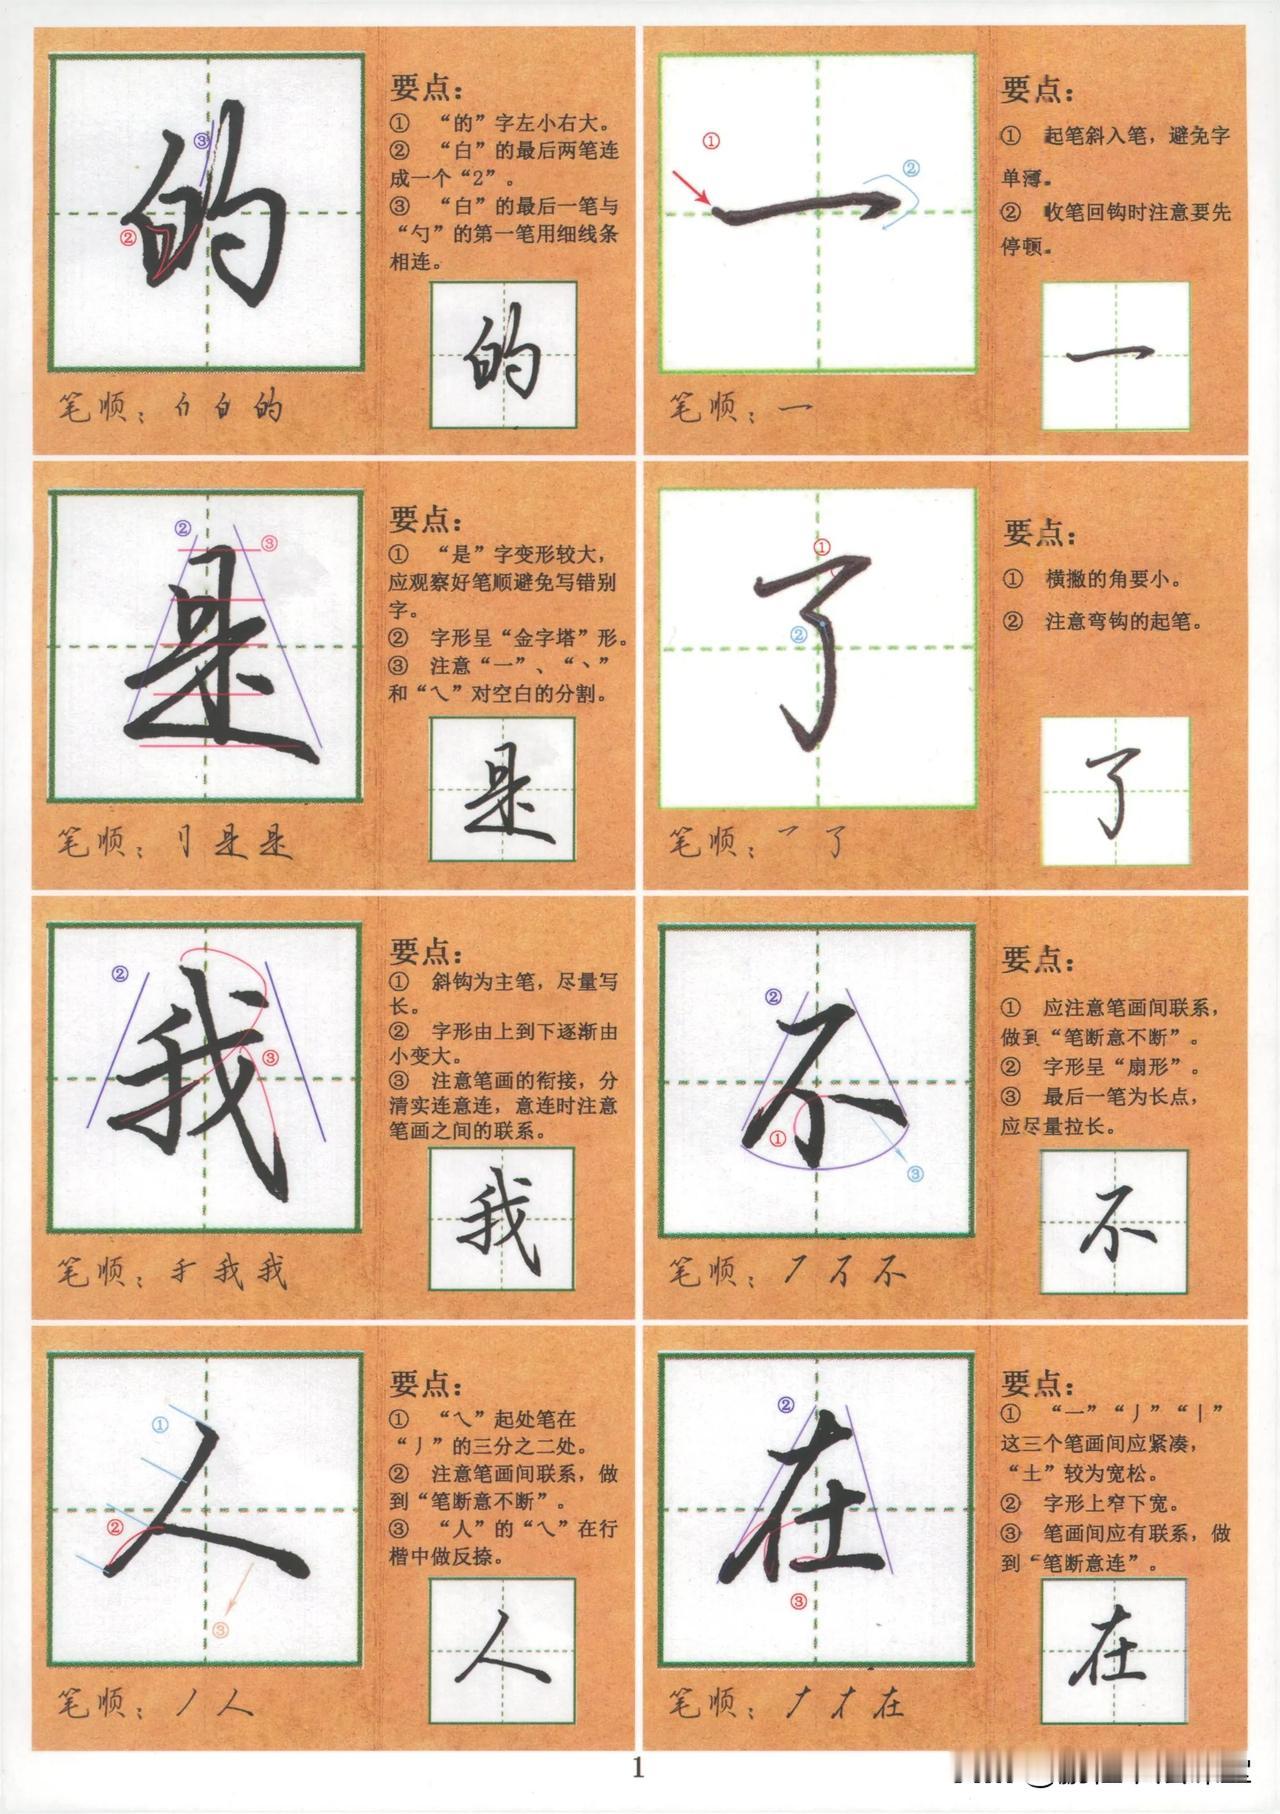 的
③
②
要点：
① “的”字左小右大。
② “白”的最后两笔连
成一个“2”。
③ “白”的最后一笔与
“勺”的第一笔用细线条
相连。
的
笔顺：白 的
一
①
②
要点：
① 起笔斜入笔，避免字
单薄。
② 收笔回钩时注意要先
停顿。
一
笔顺：一
是
②
③
要点：
① “是”字变形较大，
应观察好笔顺避免写错别
字。
② 字形呈“金字塔”形。
③ 注意“一”、“丶”
和“乀”对空白的分割。
是
笔顺：是 是
了
①
②
要点：
① 横撇的角要小。
② 注意弯钩的起笔。
了
笔顺：乛 了
我
②
③
要点：
① 斜钩为主笔，尽量写
长。
② 字形由上到下逐渐由
小变大。
③ 注意笔画的衔接，分
清实连意连，意连时注意
笔画之间的联系。
我
笔顺：手 我 我
不
②
①
③
要点：
① 应注意笔画间联系，
做到“笔断意不断”。
② 字形呈“扇形”。
③ 最后一笔为长点，
应尽量拉长。
不
笔顺：丆 不 不
人
①
②
③
要点：
① “乀”起处笔在
“丿”的三分之二处。
② 注意笔画间联系，做
到“笔断意不断”。
③ “人”的“乀”在行
楷中做反捺。
人
笔顺：丿 人
在
②
③
要点：
① “一”“丿”“丨”
这三个笔画间应紧凑，
“土”较为宽松。
② 字形上窄下宽。
③ 笔画间应有联系，做
到“笔断意连”。
在
笔顺：ナ 才 在
1